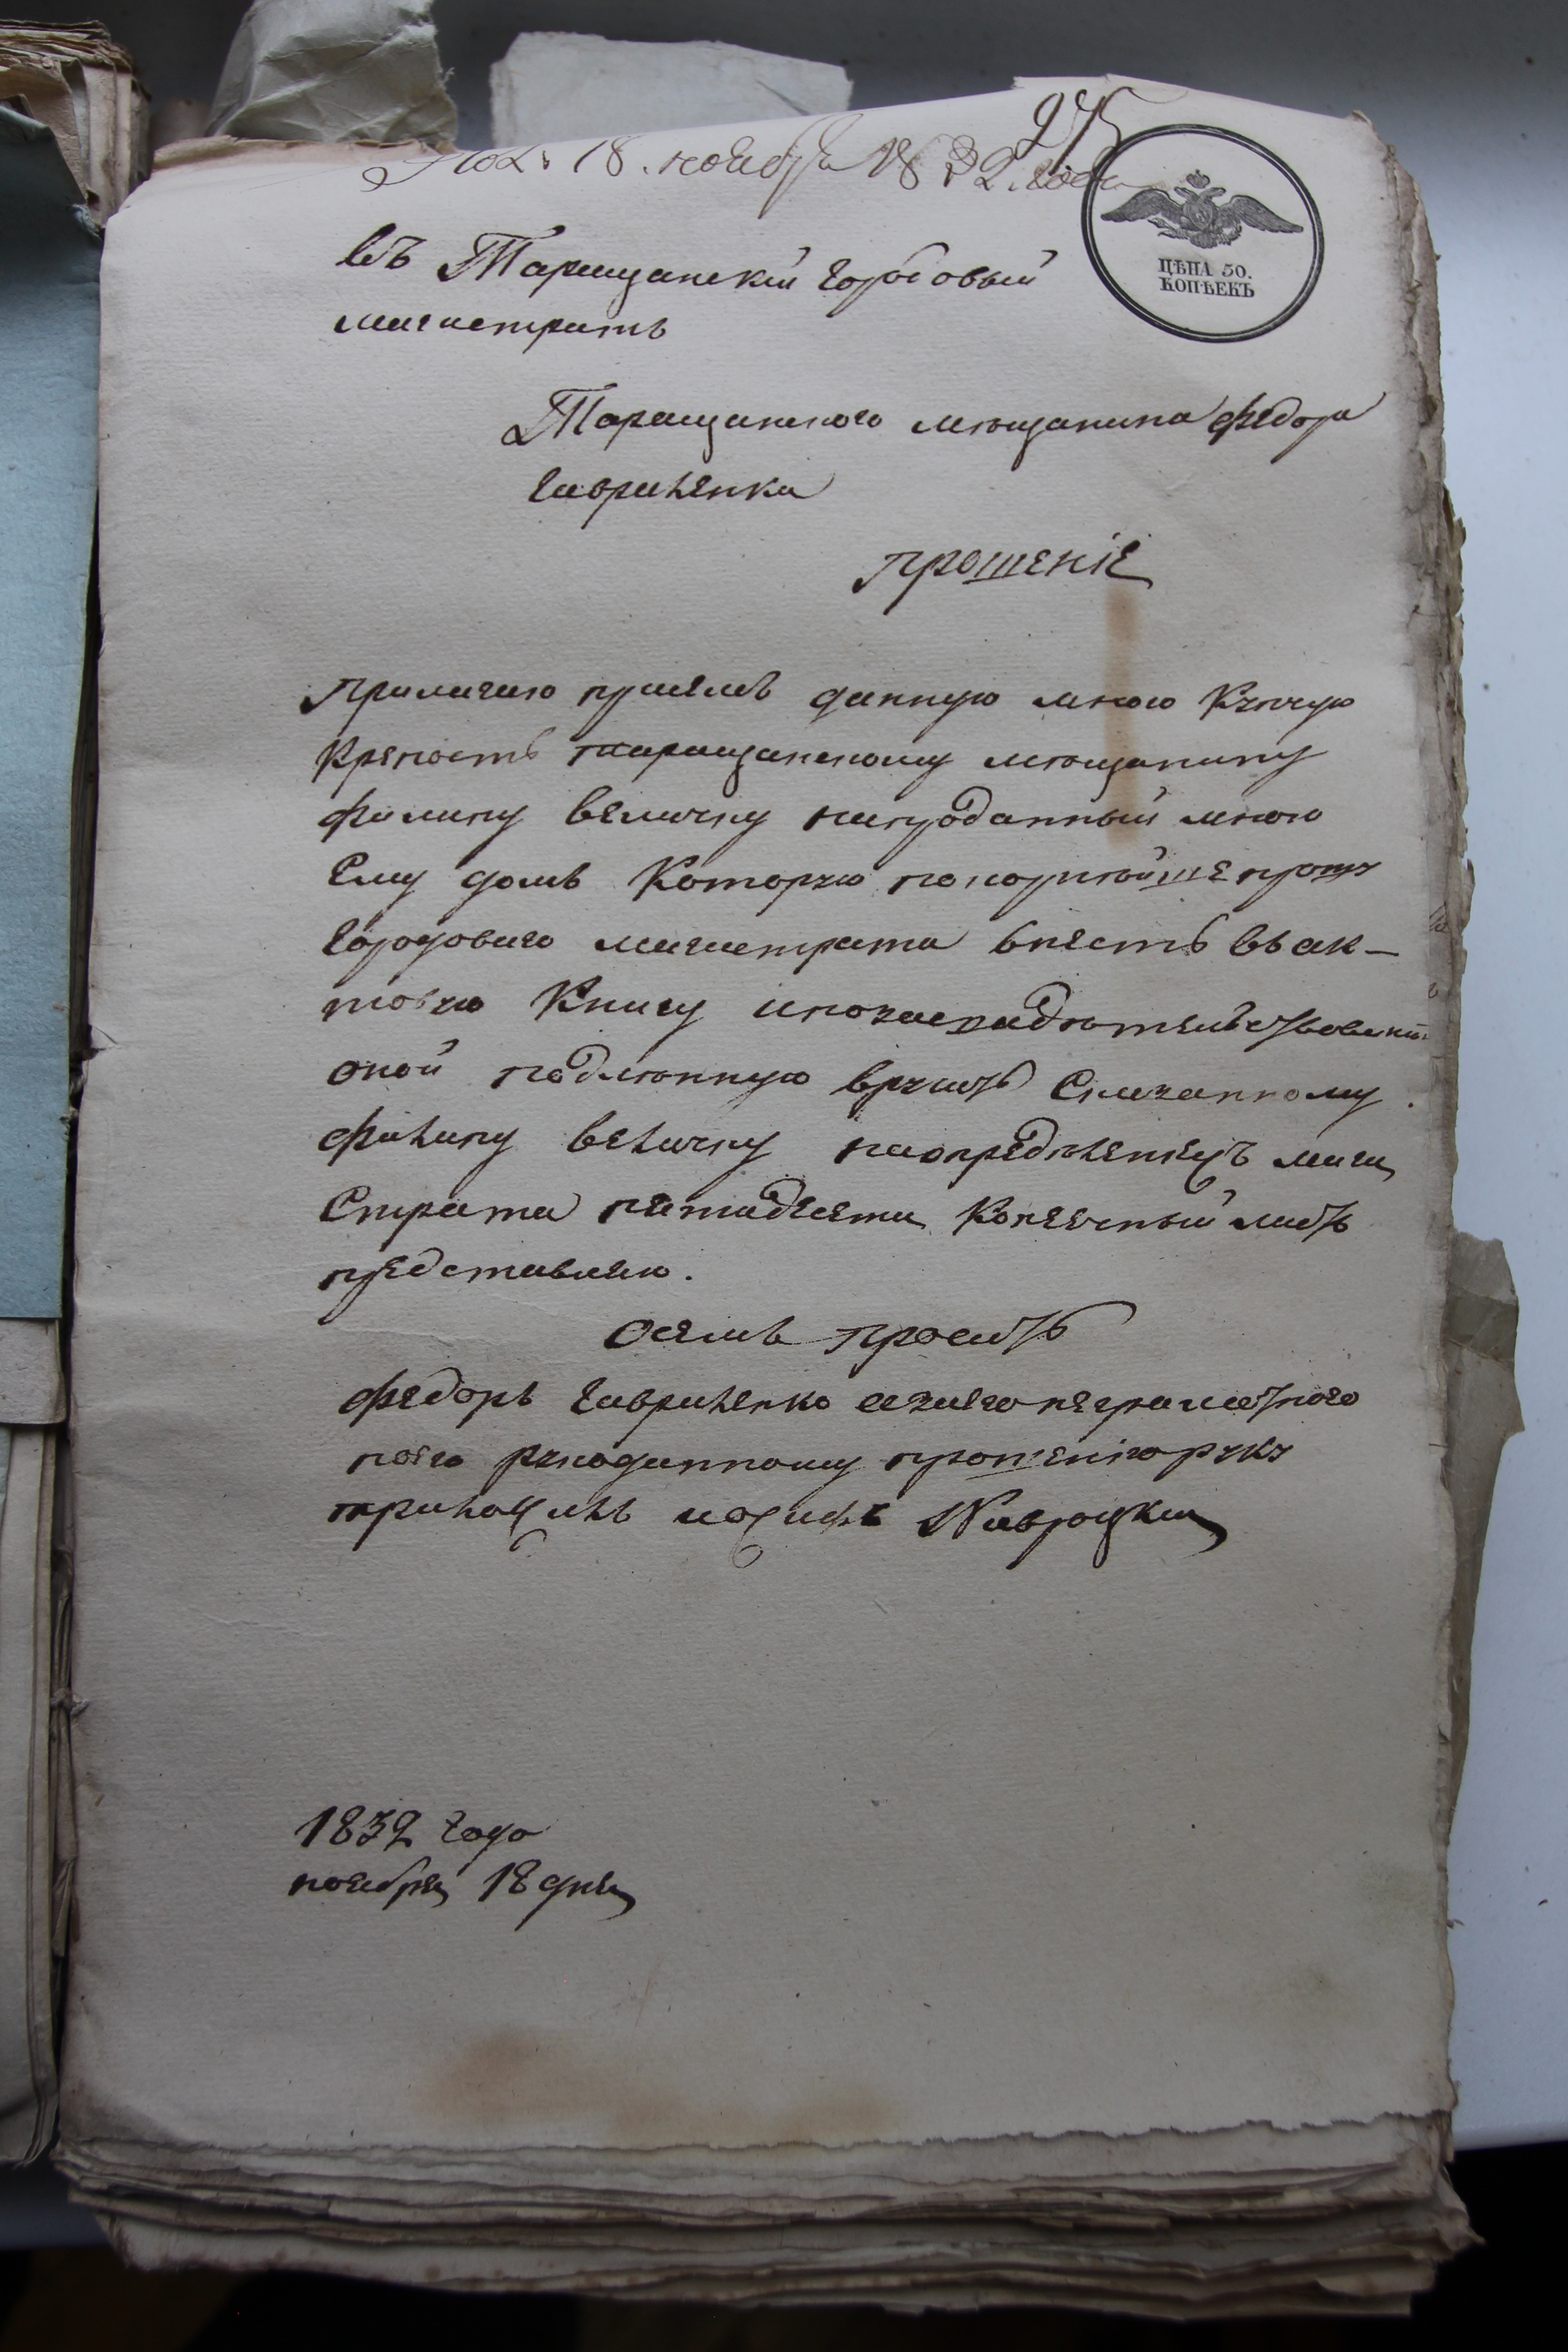 275
Пол. 18. ноября 1832. года
ЦѢНА 50.
КОПѢЕКЪ
въ Таращанскій городовый
магистратъ
Таращанского мѣщанина Федора
Гавриленка
прошеніе
Прилагаю присемъ данную мною Купчую
Крепость таращанскому мѣщанину
Филипу Величку напроданный мною
Ему домъ Которую покорнѣйше прошу
Городоваго магистрата внесть въ ак-
товую Книгу ипозасвидѣтельствованіи
оной подлѣнную вручить Сказанному
Филипу Величку наопредѣленіе маги
Страта пятидесяти Копеечный листъ
представляю.
Осемъ проситъ
Федоръ Гавриленко азанего неграмотного
поего рукоданному прошенію руку
приложилъ иосифъ Навроцкий
1832 Года
ноября 18 дня